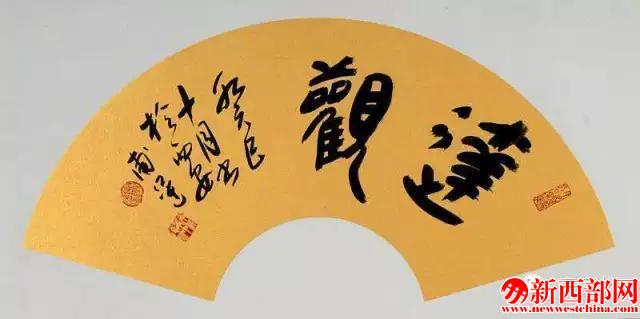 達觀
癸巳
十月書
於西安
新西部网
www.newwestchina.com